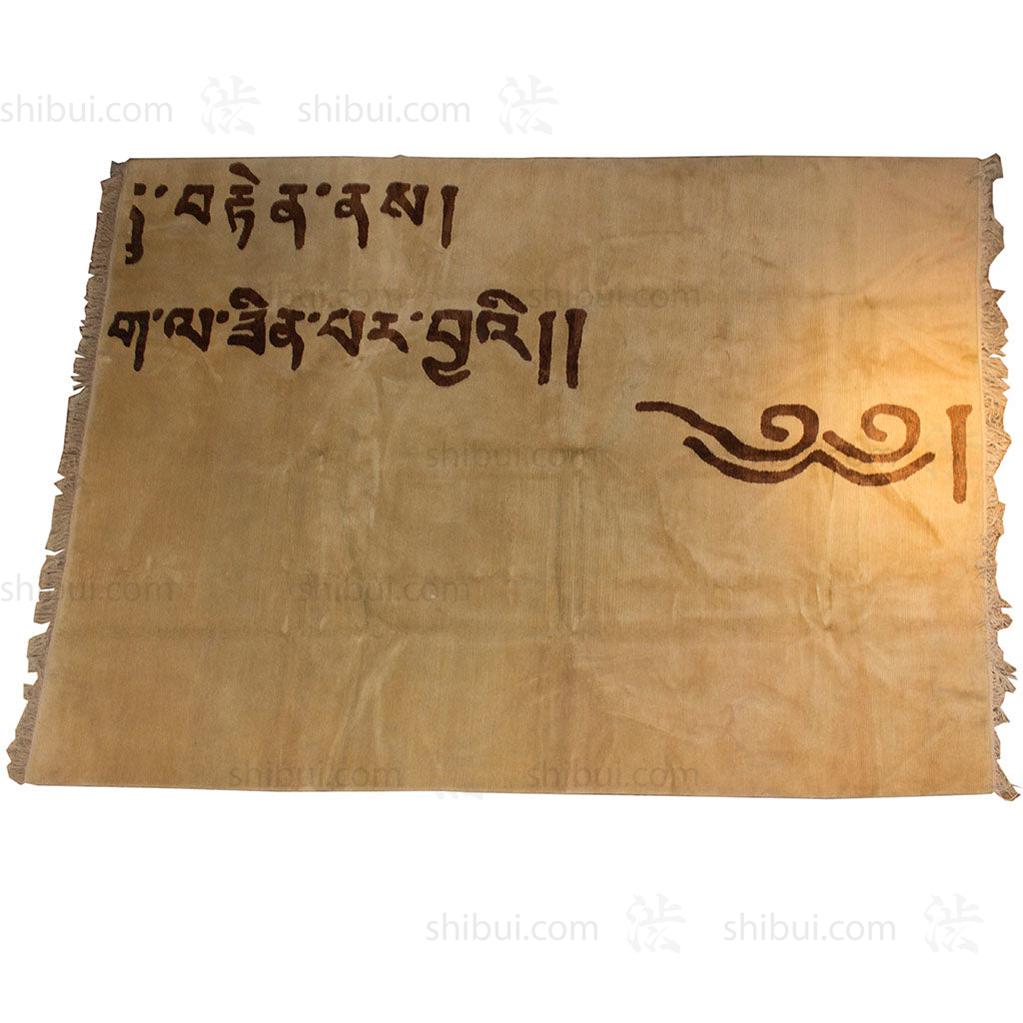 shibui.com shibui.com
་བརྟེན་ནས།
ག་ལ་ཟིན་པར་བྱའི།།
shibui.com shibui.com
༄༅།
shibui.com
shibui.com shibui.com
shibui.com shibui.com
shibui.com shibui.com